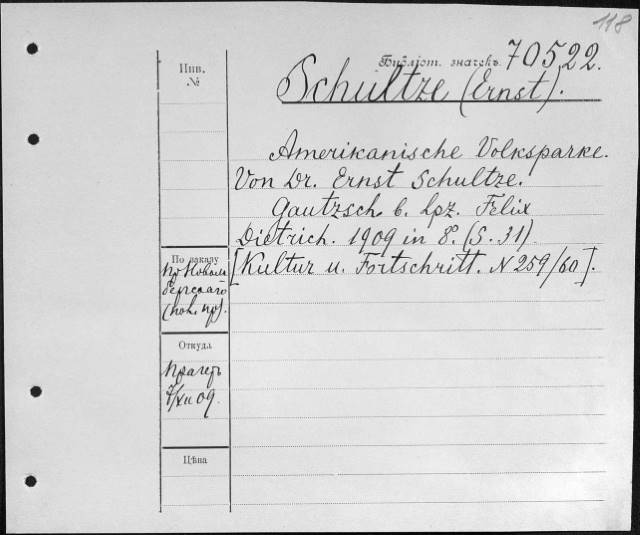 118
Инв.
№
Библіот. значекъ. 70522.
Schultze (Ernst).
Amerikanische Volksparke.
Von Dr. Ernst Schultze.
Gautzsch b. Lpz. Felix
Dietrich. 1909 in 8°. (S. 31).
[Kultur u. Fortschritt. N 259/60].
По заказу
Откуда
Прагеръ
7/XII 09.
Цѣна